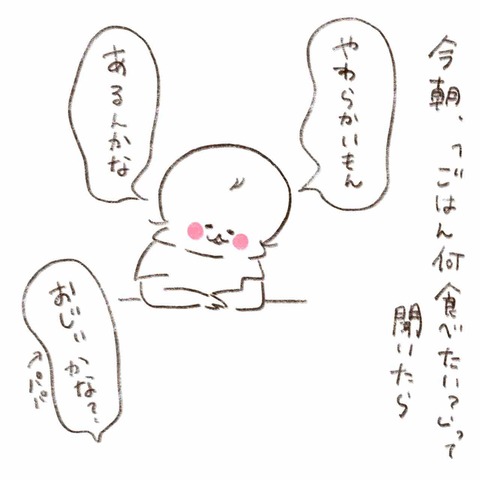 今朝、「ごはん何食べたい?」って
聞いたら
やわらかいもん
あるんかな
おじぃかな?
↑パパ